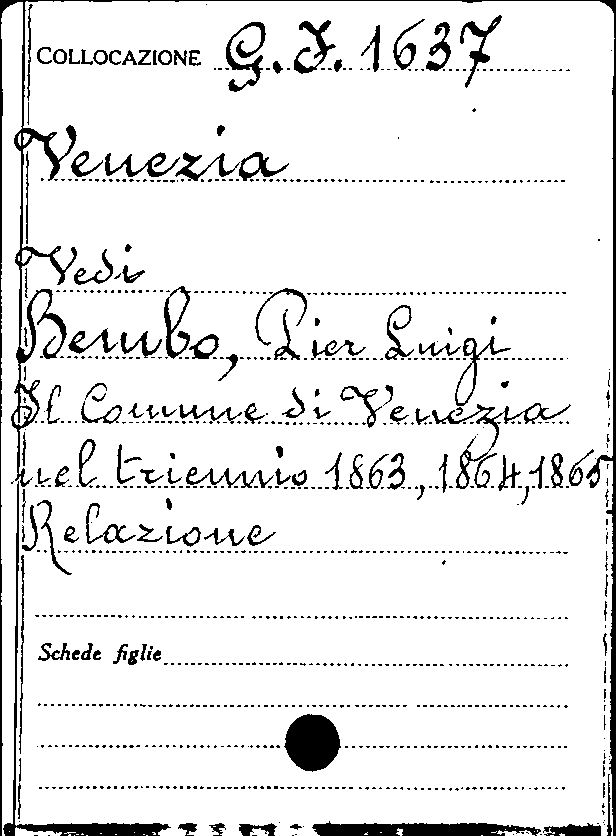 COLLOCAZIONE G. I. 1637
Venezia
Vedi
Bembo, Pier Luigi
Il Comune di Venezia
nel triennio 1863, 1864, 1865
Relazione
Schede figlie